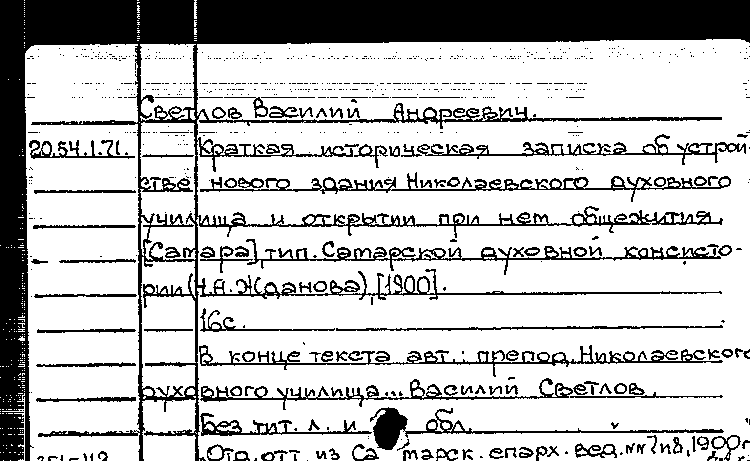 Светлов, Василий Андреевич.
20.54.1.71. Краткая историческая записка об устрой-
стве нового здания Николаевского духовного
училища и открытии при нем общежития.
[Самара], тип. Самарской духовной консисто-
рии (Н.А. Жданова), [1900].
16с.
В конце текста авт.: препод. Николаевского
духовного училища... Василий Светлов.
Без тит. л. и обл.
Отд. отт. из Самарск. епарх. вед. №№ 7 и 8, 1900г